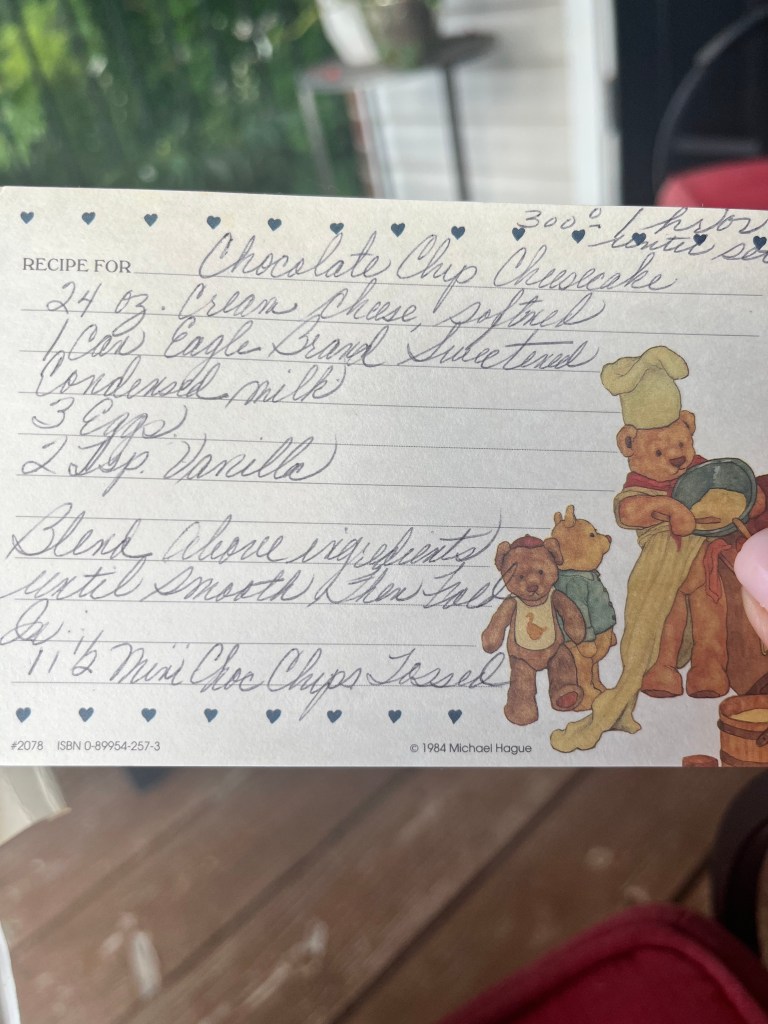 300° - 1 hr or
until set
RECIPE FOR Chocolate Chip Cheesecake
24 oz. Cream Cheese, softned
1 Can Eagle Brand Sweetened
Condensed milk
3 Eggs
2 Tsp. Vanilla
Blend Above ingredients
until Smooth then Fold
In:
1 1/2 Mini Choc Chips Tossed
#2078 ISBN 0-89954-257-3
© 1984 Michael Hague